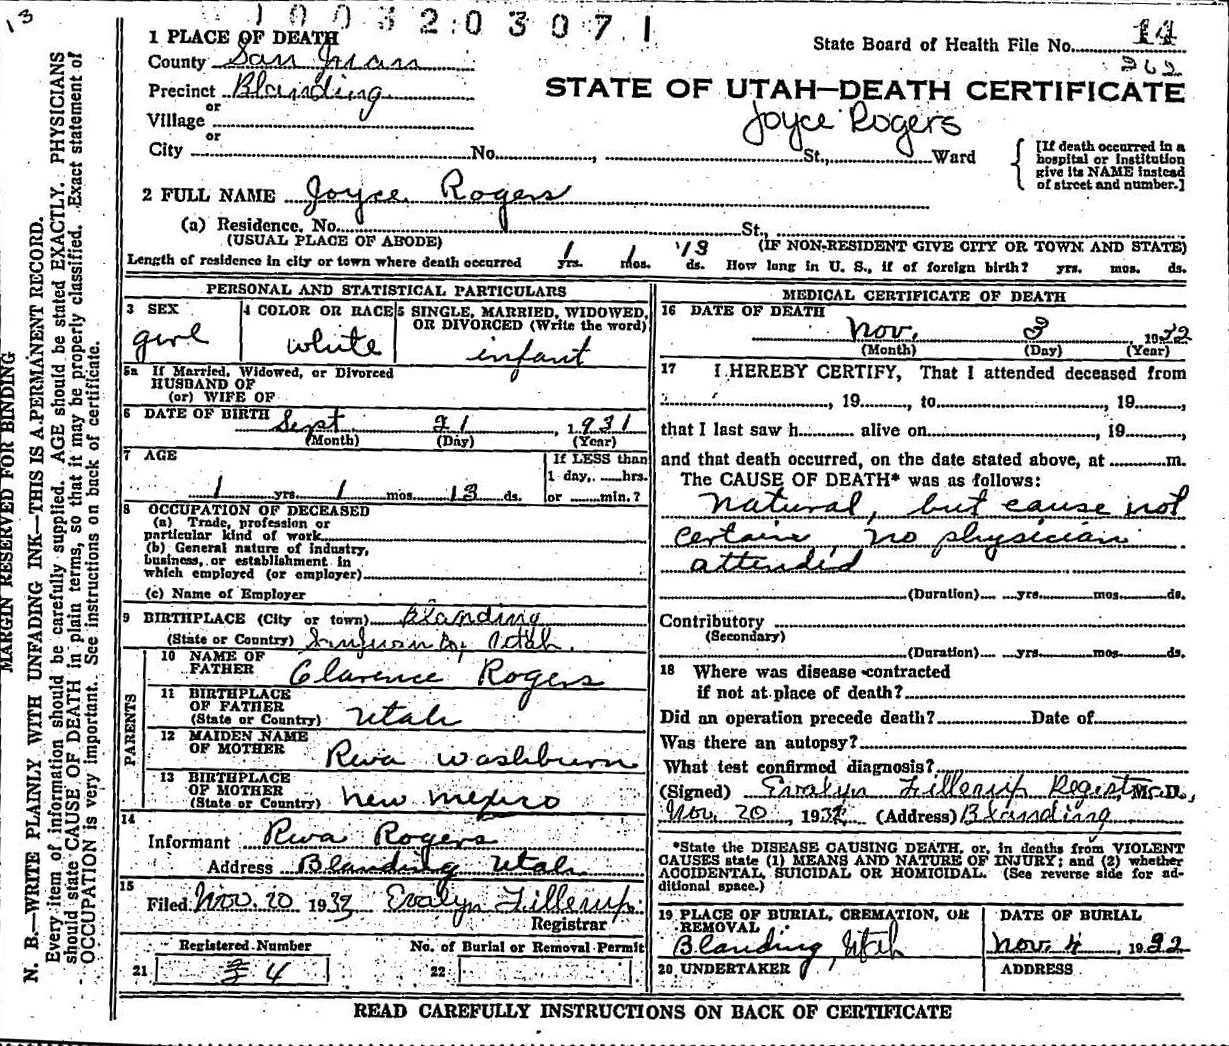 13
1003203071
1 PLACE OF DEATH
County San Juan
Precinct Blanding
or
Village
or
City No. , St., Ward
State Board of Health File No. 14
362
STATE OF UTAH—DEATH CERTIFICATE
Joyce Rogers
[If death occurred in a hospital or institution give its NAME instead of street and number.]
2 FULL NAME Joyce Rogers
(a) Residence. No. St.,
(USUAL PLACE OF ABODE) (IF NON-RESIDENT GIVE CITY OR TOWN AND STATE)
Length of residence in city or town where death occurred 1 yrs. 1 mos. 13 ds. How long in U. S., if of foreign birth? yrs. mos. ds.
PERSONAL AND STATISTICAL PARTICULARS
3 SEX
girl
4 COLOR OR RACE
white
5 SINGLE, MARRIED, WIDOWED, OR DIVORCED (Write the word)
infant
5a If Married, Widowed, or Divorced
HUSBAND OF
(or) WIFE OF
6 DATE OF BIRTH Sept 21, 1931
(Month) (Day) (Year)
7 AGE
1 yrs. 1 mos. 13 ds.
If LESS than
1 day, hrs.
or min.?
8 OCCUPATION OF DECEASED
(a) Trade, profession or
particular kind of work
(b) General nature of industry,
business, or establishment in
which employed (or employer)
(c) Name of Employer
9 BIRTHPLACE (City or town) Blanding
(State or Country) San Juan Co, Utah.
PARENTS
10 NAME OF FATHER Clarence Rogers
11 BIRTHPLACE OF FATHER (State or Country) Utah
12 MAIDEN NAME OF MOTHER Reva Washburn
13 BIRTHPLACE OF MOTHER (State or Country) New Mexico
14
Informant Reva Rogers
Address Blanding Utah
15
Filed Nov. 20 1932 Evalyn Fillerup
Registrar
Registered Number
21 4
No. of Burial or Removal Permit
22
MEDICAL CERTIFICATE OF DEATH
16 DATE OF DEATH
Nov. 3 1932
(Month) (Day) (Year)
17 I HEREBY CERTIFY, That I attended deceased from
, 19 , to , 19 ,
that I last saw h alive on , 19 ,
and that death occurred, on the date stated above, at m.
The CAUSE OF DEATH* was as follows:
natural, but cause not
certain, no physician
attended
(Duration) yrs. mos. ds.
Contributory
(Secondary)
(Duration) yrs. mos. ds.
18 Where was disease contracted
if not at place of death?
Did an operation precede death? Date of
Was there an autopsy?
What test confirmed diagnosis?
(Signed) Evalyn Fillerup Registrar, M. D.,
Nov. 20, 1932 (Address) Blanding
*State the DISEASE CAUSING DEATH, or, in deaths from VIOLENT
CAUSES state (1) MEANS AND NATURE OF INJURY; and (2) whether
ACCIDENTAL, SUICIDAL OR HOMICIDAL. (See reverse side for ad-
ditional space.)
19 PLACE OF BURIAL, CREMATION, OR REMOVAL
Blanding, Utah
DATE OF BURIAL
Nov. 4 1932
20 UNDERTAKER
ADDRESS
READ CAREFULLY INSTRUCTIONS ON BACK OF CERTIFICATE
MARGIN RESERVED FOR BINDING
N. B.—WRITE PLAINLY WITH UNFADING INK—THIS IS A PERMANENT RECORD.
Every item of information should be carefully supplied. AGE should be stated EXACTLY. PHYSICIANS
should state CAUSE OF DEATH in plain terms, so that it may be properly classified. Exact statement of
OCCUPATION is very important. See instructions on back of certificate.